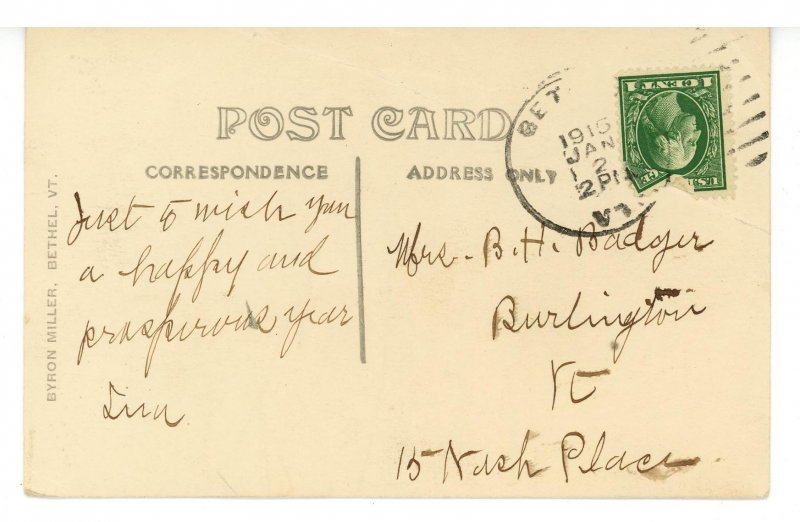 POST CARD
CORRESPONDENCE
ADDRESS ONLY
BYRON MILLER, BETHEL, VT.
Just to wish you
a happy and
prosperous year
Mrs. B. H. Badger
Burlington
Vt
15 Nash Place
BET
1915
JAN
2
2 PM
VT
ONE